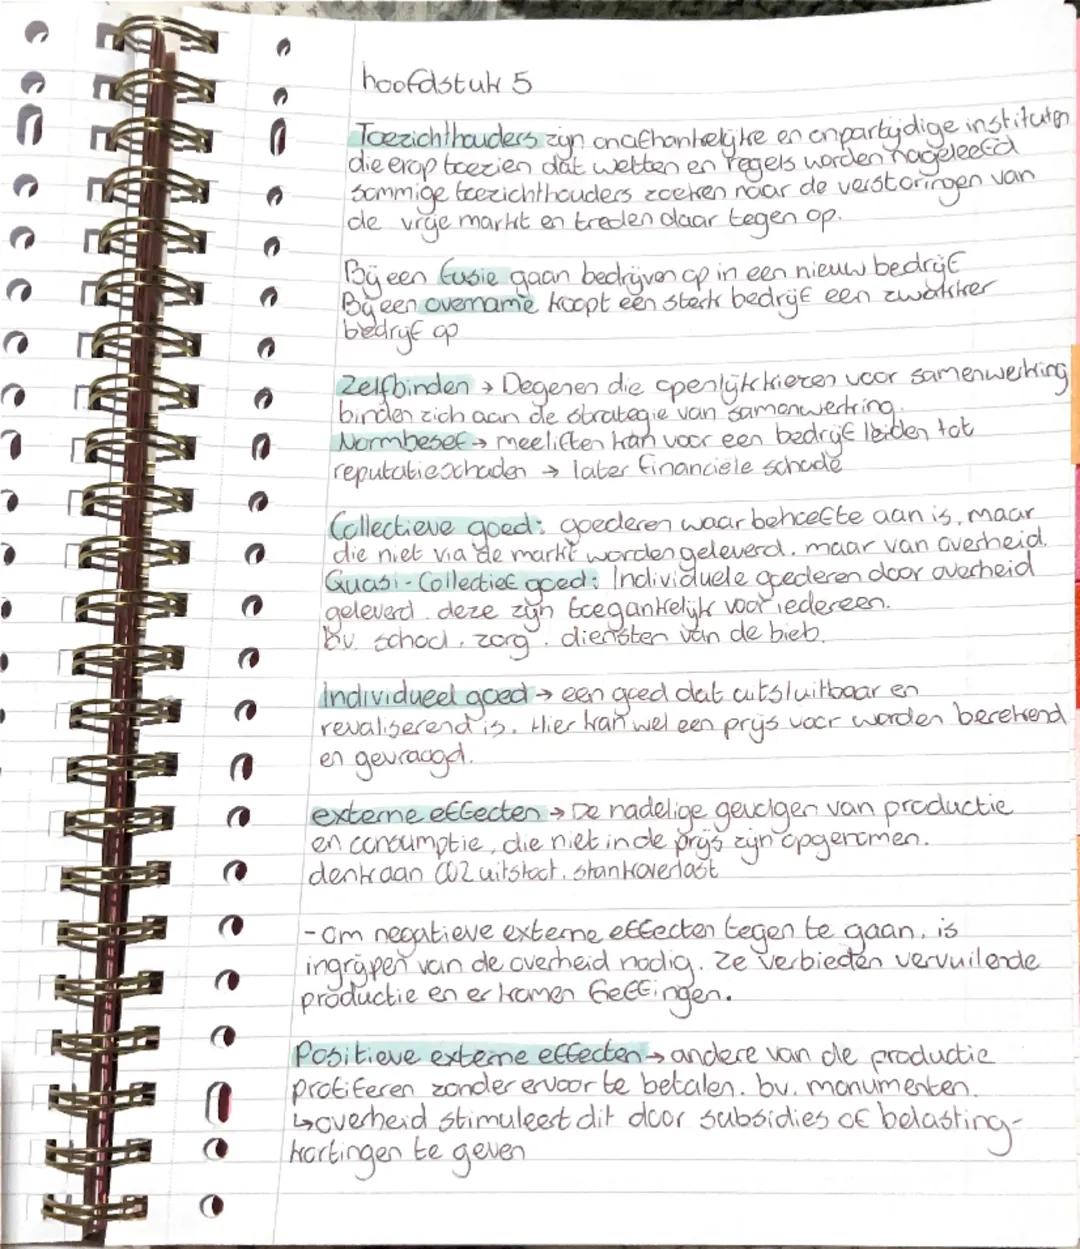 hoofdstuk 5
Toezichthouders zijn onafhankelijke en onpartijdige instituten
die erop toezien dat wetten en regels worden nageleefd
sommige toezichthouders zoeken naar de verstoringen van
de vrije markt en treden daar tegen op.
Bij een fusie gaan bedrijven op in een nieuw bedrijf
Bij een overname koopt een sterk bedrijf een zwakker
bedrijf op
Zelfbinden → Degenen die openlijk kiezen voor samenwerking
binden zich aan de strategie van samenwerking.
Normbesef → meeliften kan voor een bedrijf leiden tot
reputatieschaden → later financiele schade
Collectieve goed: goederen waar behoefte aan is, maar
die niet via de markt worden geleverd. maar van overheid.
Quasi-Collectief goed: Individuele goederen door overheid
geleverd. deze zijn toegankelijk voor iedereen.
bv. school, zorg, diensten van de bieb.
Individueel goed → een goed dat uitsluitbaar en
revaliserend is. Hier kan wel een prijs voor worden berekend
en gevraagd.
externe effecten → De nadelige gevolgen van productie
en consumptie, die niet in de prijs zijn opgenomen.
denk aan CO2 uitstoot, stankoverlast
- om negatieve externe effecten tegen te gaan, is
ingrijpen van de overheid nodig. Ze verbieden vervuilende
productie en er komen heffingen.
Positieve externe effecten → andere van de productie
profiteren zonder ervoor te betalen. bv. monumenten.
↳ overheid stimuleert dit door subsidies of belasting-
kortingen te geven